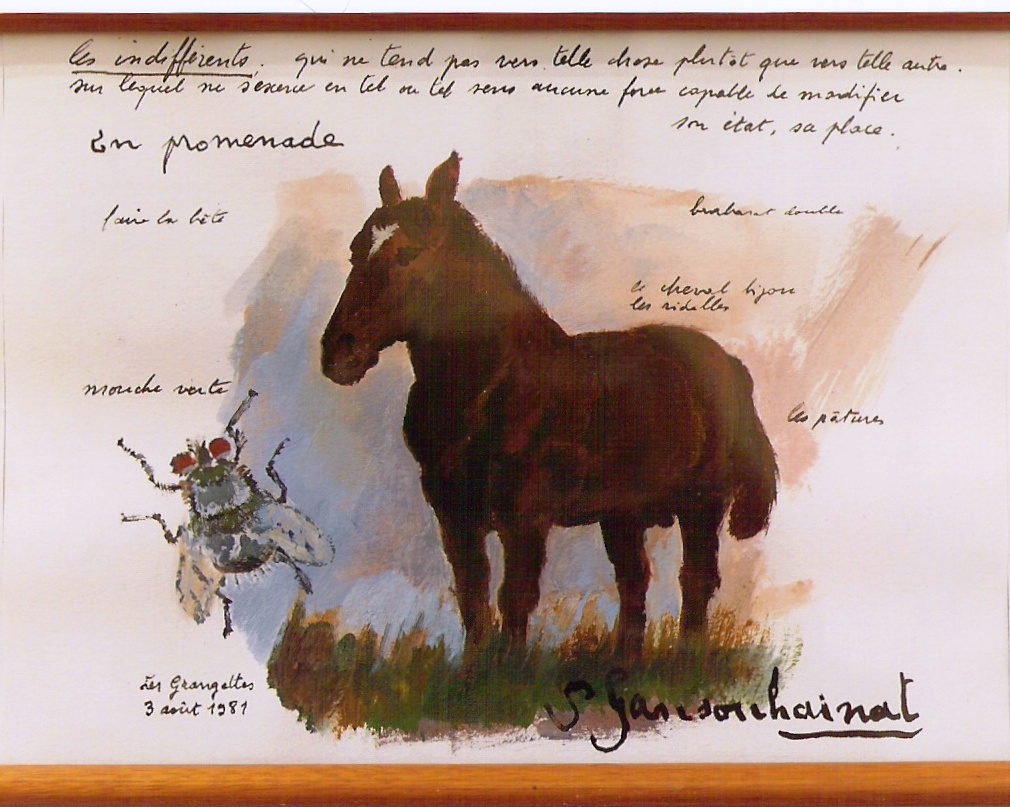 les indifférents. qui ne tend pas vers telle chose plutôt que vers telle autre.
sur lequel ne s'exerce en tel ou tel sens aucune force capable de modifier
son état, sa place.
En promenade
faire la bête
double
le cheval bijou
les ridelles
mouche verte
les pâtures
Les Grangettes
3 août 1981